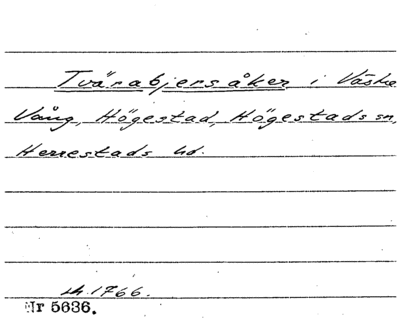 Tvärabjersåker i Västra
Vång, Högestad, Högestads sn,
Herrestads hd.
1766.
Nr 5636.